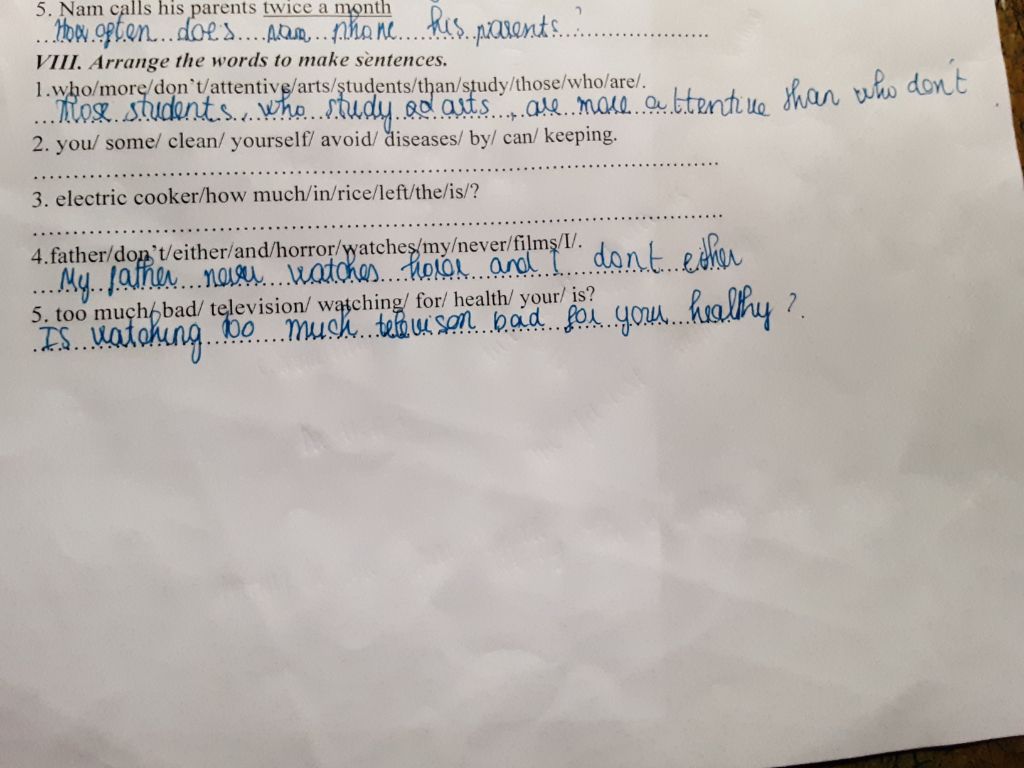 5. Nam calls his parents twice a month
How often does nam phone his parents?
VIII. Arrange the words to make sentences.
1.who/more/don't/attentive/arts/students/than/study/those/who/are/.
Those students, who study arts, are more attentive than who don't
2. you/ some/ clean/ yourself/ avoid/ diseases/ by/ can/ keeping.
3. electric cooker/how much/in/rice/left/the/is/?
4.father/don't/either/and/horror/watches/my/never/films/I/.
My father never watches horor and I dont either
5. too much/ bad/ television/ watching/ for/ health/ your/ is?
Is watching too much televison bad for your healthy?